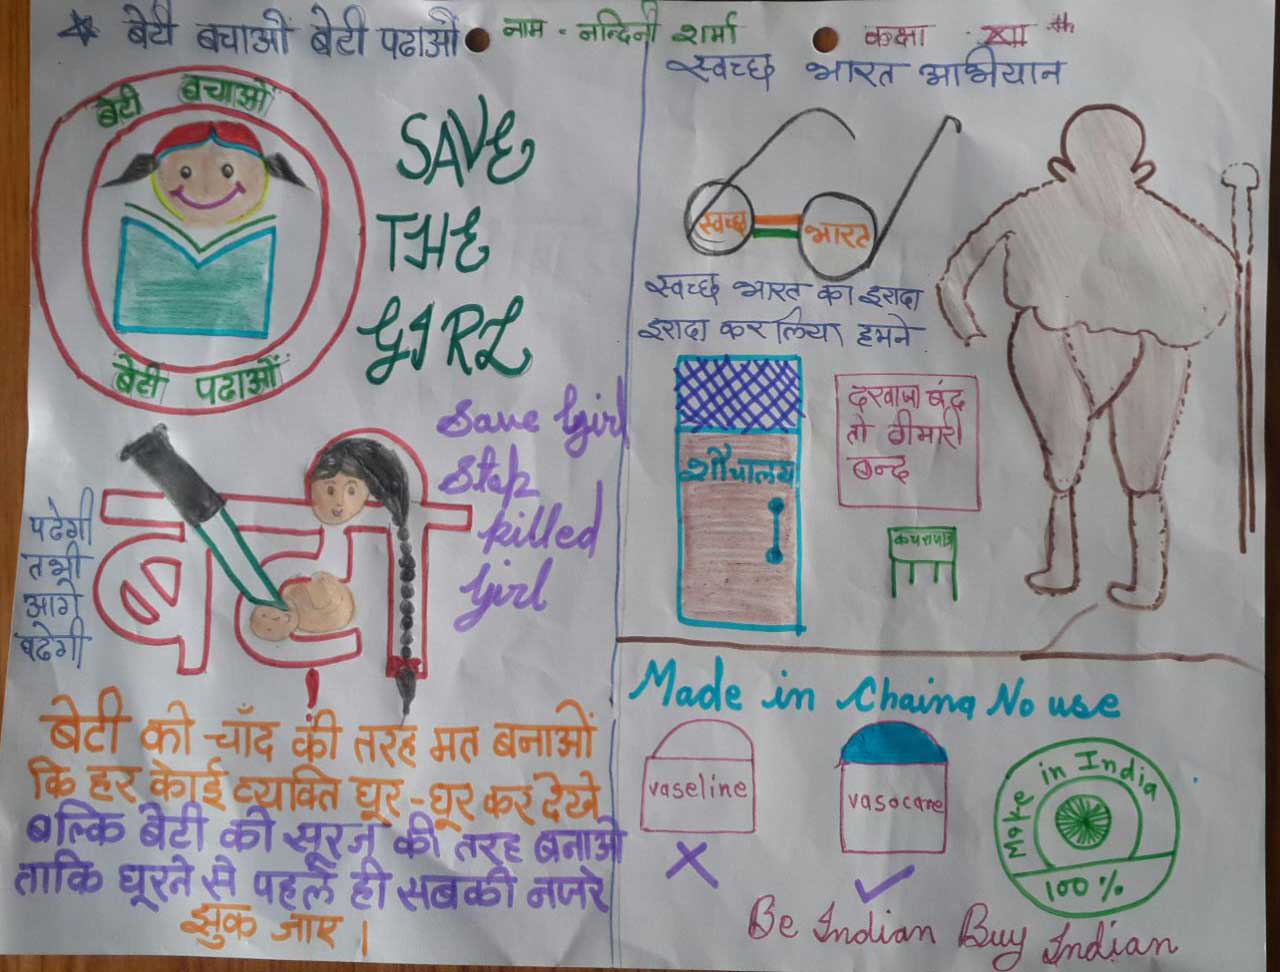 बेटी बचाओं बेटी पढाओं
नाम - नन्दिनी शर्मा
कक्षा - XII th
बेटी बचाओं
बेटी पढाओं
SAVE
THE
GIRL
Save Girl
Stop
killed
Girl
पढेगी
तभी
आगे
बढेगी
बेटी
बेटी को चाँद की तरह मत बनाओं
कि हर केाई व्यक्ति घूर-घूर कर देखे
बल्कि बेटी को सूरज की तरह बनाओ
ताकि घूरने से पहले ही सबकी नजरे
झुक जाए।
स्वच्छ भारत अभियान
स्वच्छ भारत
स्वच्छ भारत का इरादा
इरादा कर लिया हमने
शौचालय
दरवाजा बंद
तो बीमारी
बन्द
कचरापात्र
Made in Chaina No use
vaseline
vasocare
Make in India
100%
Be Indian Buy Indian